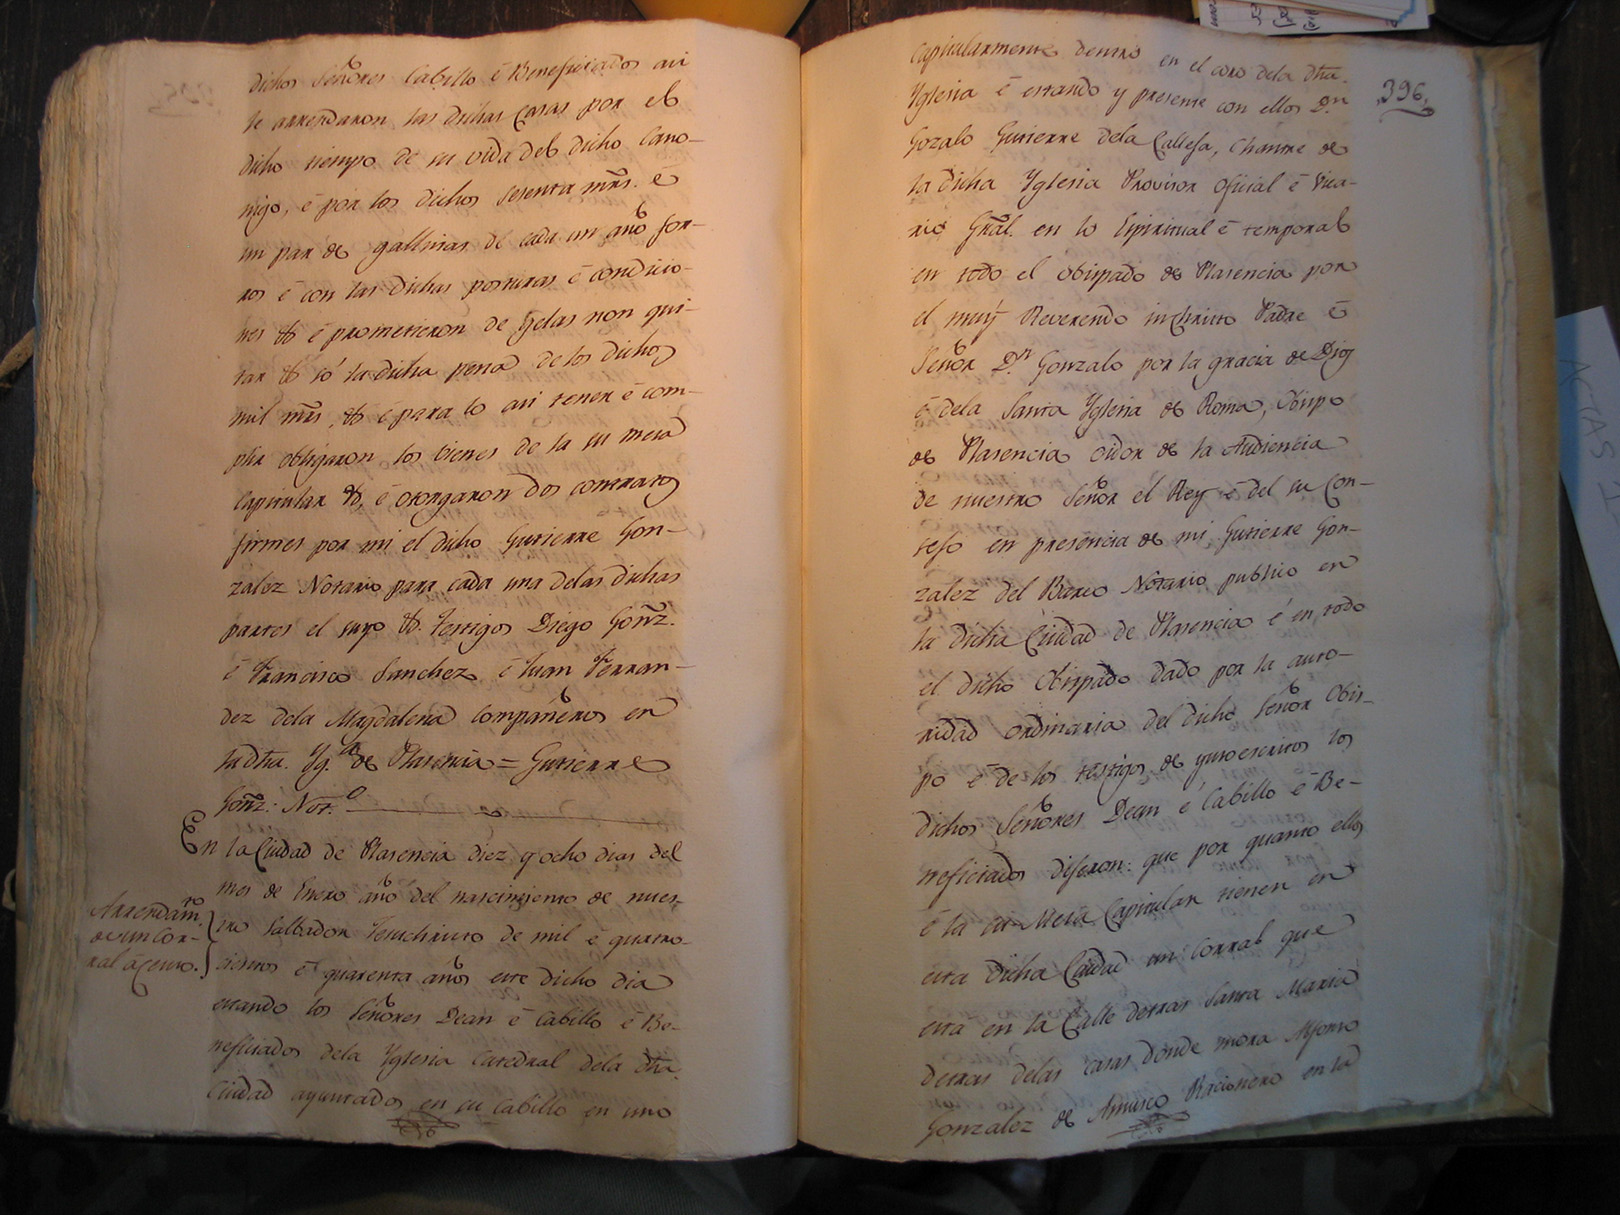 dichos Señores Cabillo é Beneficiados asi
le arrendaron las dichas Casas por el
dicho tiempo de su vida del dicho Cano-
nigo, é por los dichos sesenta mrs. é
un par de gallinas de cada un año for-
ros é con las dichas posturas é condicio-
nes &. é prometieron de gelas non qui-
tar &. só la dicha pena de los dichos
mil mrs, &. é para lo asi tener é com-
plir obligaron los bienes de la su mesa
Capitular &, é otorgaron dos contratos
firmes por mi el dicho Gutierre Gon-
zalez Notario para cada una delas dichas
partes el suyo &. Testigos Diego Gonz.
é Francisco Sanchez é Juan Ferran-
dez dela Magdalena Compañeros en
la dha. Yg.la de Plasencia = Gutierre
Gonz: Not.o
En la Ciudad de Plasencia diez y ocho dias del
mes de Enero año del nascimiento de nues-
tro Salbador Jesuchristo de mil é quatro-
cientos é quarenta años este dicho dia
estando los Señores Dean é Cabillo é Be-
neficiados dela Yglesia Catedral dela dha.
Ciudad ayuntados en su Cabillo en uno
Arrendam.to
de un Cor-
ral á Censo.
396.
Capitularmente dentro en el coro dela dha.
Yglesia é estando y presente con ellos D.n
Gozalo Gutierre dela Callesa, Chantre de
la dicha Yglesia Provisor Oficial é Vica-
rio Gral. en lo Espiritual é temporal
en todo el Obispado de Plasencia por
el muy Reverendo inChristo Padre é
Señor D.n Gonzalo por la gracia de Dios
é dela Santa Yglesia de Roma, Obispo
de Plasencia oidor de la Audiencia
de nuestro Señor el Rey é del su Con-
sejo en presencia de mi Gutierre Gon-
zalez del Barco Notario publico en
la dicha Ciudad de Plasencia é en todo
el dicho Obispado dado por la auto-
ridad ordinaria del dicho Señor Obis-
po é de los testigos de yuso escritos los
dichos Señores Dean é Cabillo é Be-
neficiados dijeron: que por quanto ellos
é la su Mesa Capitular tienen en
esta dicha Ciudad un Corral que
esta en la Calle detras Santa Maria
detras delas casas donde mora Alfonso
Gonzalez de Amusco Racionero en la
ACTAS 1